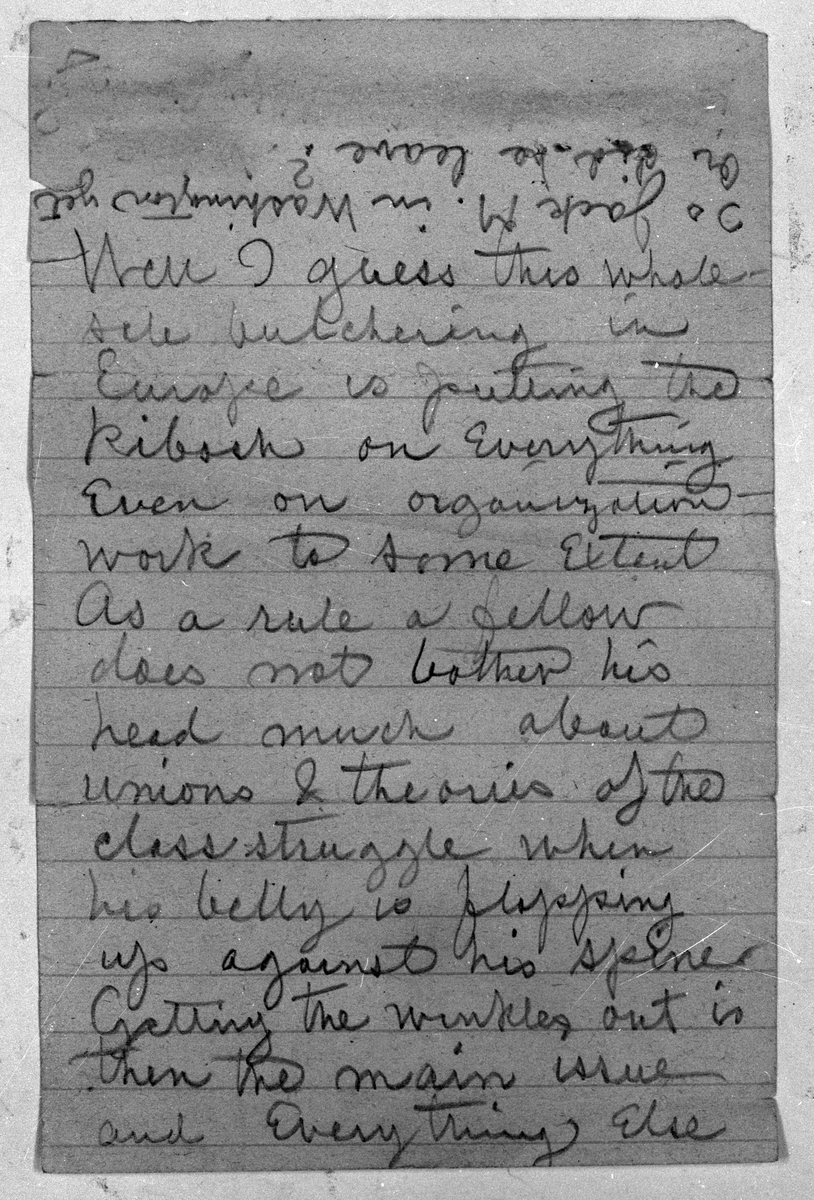 Is Jack M. in Washington yet
Or did he leave?
Well I guess this whole-
sele butchering in
Europe is putting the
kibosh on Everything
Even on organization
work to some Extent
As a rule a fellow
does not bother his
head much about
unions & theories of the
class struggle when
his belly is flapping
up against his spine
Getting the wrinkles out is
then the main issue
and Everything Else